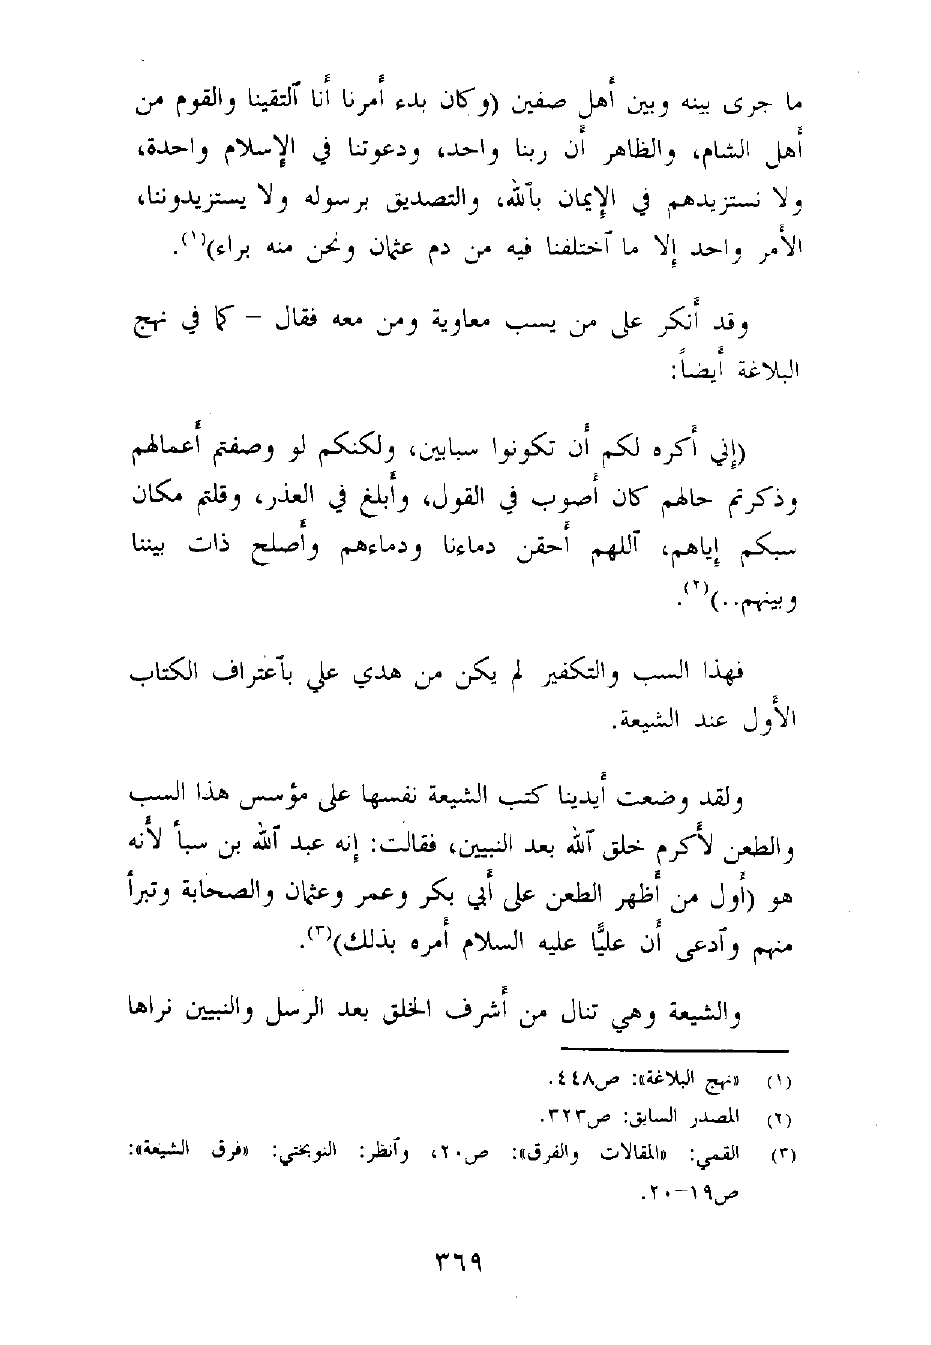 ما جرى بينه وبين أهل صفين (وكان بدء أمرنا أنا ٱلتقينا والقوم من
أهل الشام، والظاهر أن ربنا واحد، ودعوتنا في الإسلام واحدة،
ولا نستزيدهم في الإيمان بٱلله، والتصديق برسوله ولا يستزيدوننا،
الأمر واحد إلا ما ٱختلفنا فيه من دم عثمان ونحن منه براء)(١).
وقد أنكر على من يسب معاوية ومن معه فقال – كما في نهج
البلاغة أيضاً:
(إني أكره لكم أن تكونوا سبابين، ولكنكم لو وصفتم أعمالهم
وذكرتم حالهم كان أصوب في القول، وأبلغ في العذر، وقلتم مكان
سبكم إياهم، ٱللهم أحقن دماءنا ودماءهم وأصلح ذات بيننا
وبينهم..)(٢).
فهذا السب والتكفير لم يكن من هدي علي بٱعتراف الكتاب
الأول عند الشيعة.
ولقد وضعت أيدينا كتب الشيعة نفسها على مؤسس هذا السب
والطعن لأكرم خلق ٱلله بعد النبيين، فقالت: إنه عبد ٱلله بن سبأ لأنه
هو (أول من أظهر الطعن على أبي بكر وعمر وعثمان والصحابة وتبرأ
منهم وٱدعى أن عليًّا عليه السلام أمره بذلك)(٣).
والشيعة وهي تنال من أشرف الخلق بعد الرسل والنبيين نراها
(١) «نهج البلاغة»: ص٤٤٨.
(٢) المصدر السابق: ص٣٢٣.
(٣) القمي: «المقالات والفرق»: ص٢٠، وٱنظر: النوبختي: «فرق الشيعة»:
ص١٩–٢٠.
٣٦٩